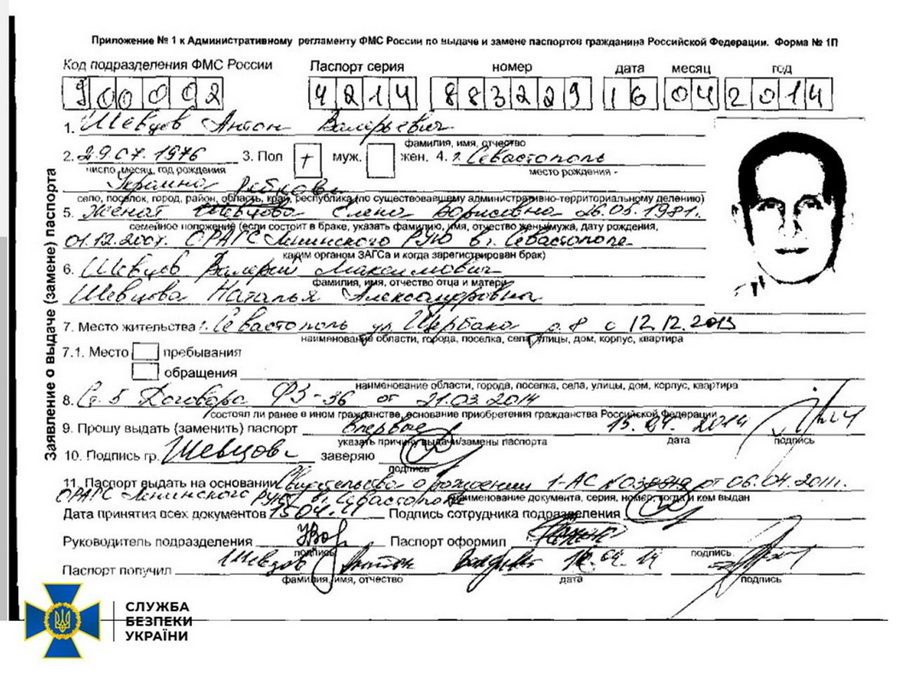 Приложение № 1 к Административному регламенту ФМС России по выдаче и замене паспортов гражданина Российской Федерации. Форма № 1П
Код подразделения ФМС России Паспорт серия номер дата месяц год
900002 4214 883229 16 04 2014
1. Шевцов Антон Валерьевич
фамилия, имя, отчество
2. 29.07.1976 3. Пол + муж. жен. 4. г. Севастополь
число, месяц, год рождения место рождения -
Украина
село, поселок, город, район, область, край, республика (по существовавшему административно-территориальному делению)
5. Женат Шевцова Елена Борисовна 26.05.1981.
семейное положение (если состоит в браке, указать фамилию, имя, отчество жены/мужа, дату рождения,
01.12.2007. ОРАГС Ленинского РУЮ в г. Севастополе
каким органом ЗАГСа и когда зарегистрирован брак)
6. Шевцов Валерий Максимович
фамилия, имя, отчество отца и матери
Шевцова Наталья Александровна
7. Место жительства г. Севастополь ул. Щербака д. 8 с 12.12.2013
наименование области, города, поселка, села, улицы, дом, корпус, квартира
7.1. Место пребывания
обращения
наименование области, города, поселка, села, улицы, дом, корпус, квартира
8. Ст. 5 Договора ФЗ-36 от 21.03.2014
(состоял ли ранее в ином гражданстве, основание приобретения гражданства Российской Федерации
9. Прошу выдать (заменить) паспорт впервые 15.04.2014
указать причину выдачи/замены паспорта дата подпись
10. Подпись гр. Шевцов заверяю
подпись
11. Паспорт выдать на основании Свидетельства о рождении 1-АС от 06.04.2011г.
ОРАГС Ленинского РУЮ в г. Севастополе наименование документа, серия, номер, когда и кем выдан
Дата принятия всех документов 15.04.14 Подпись сотрудника подразделения
Руководитель подразделения Паспорт оформил
подпись подпись
Паспорт получил Шевцов Антон 16.04.14
фамилия, имя, отчество дата подпись
Заявление о выдаче (замене) паспорта
СЛУЖБА
БЕЗПЕКИ
УКРАЇНИ